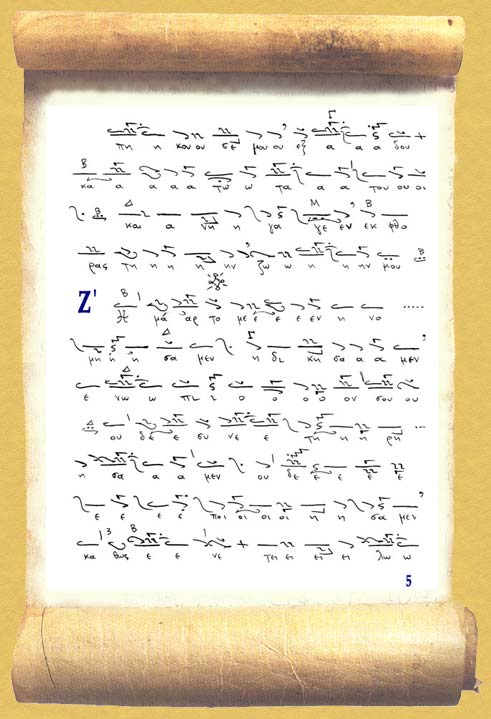 πη η κου ου σε μου ου εξ α α α δου
κα α α α α τω ω τα α α του ου οι
και α νη η γα γε εν εκ φθο
ρας τη η η η ην ζω ω η η ην μου
Ζ' μά αρ το με ε ε ε εν η νο
μη η η σα μεν η δι κη σα α α μεν
ε νω ω πι ι ο ο ο ου ον σου ου
ου δε ε συ νε ε τη η η ρη
η σα α α μεν ου δε ε ε ε ε
ε ε ε ε ποι οι οι οι η η σα μεν
κα θως ε ε νε τει ει ει ει λω ω
5